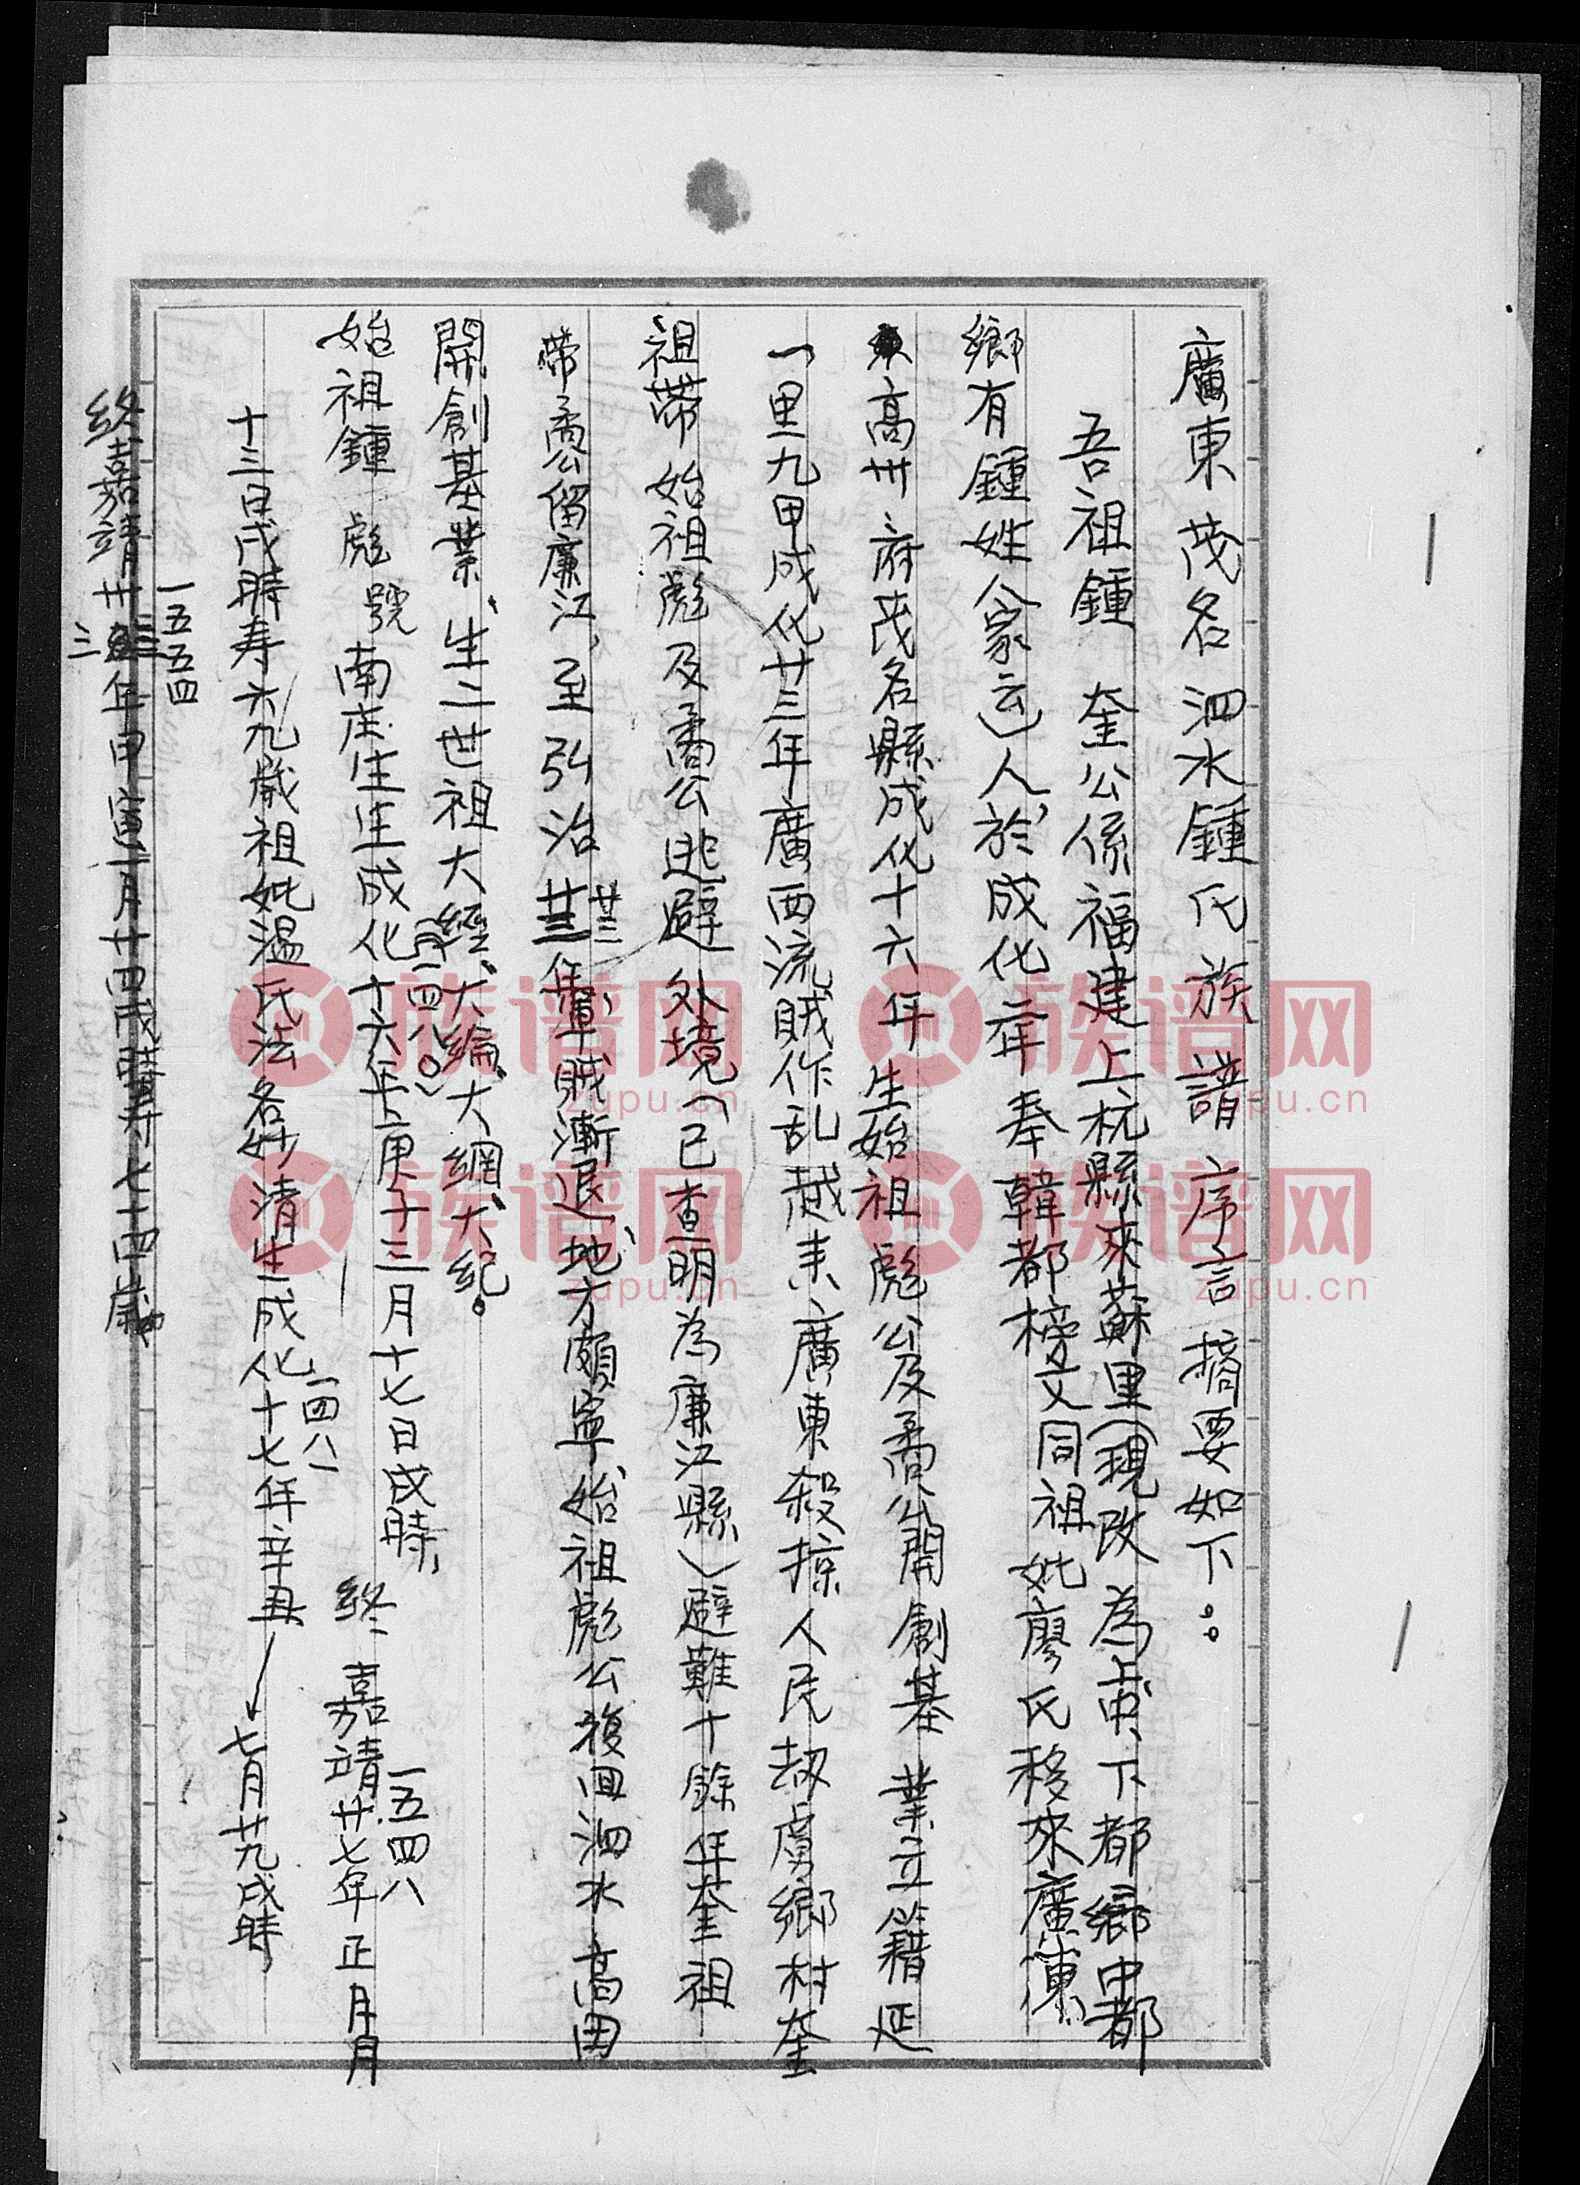 廣東茂名泗水鍾氏族譜序言摘要如下：
吾祖鍾 奎公係福建上杭縣來蘇里（現改為上中、下都鄉中都
鄉有鍾姓八家云）人，於成化二年奉韓都榜文同祖妣廖氏移來廣東
高州府茂名縣成化十六年生始祖彪公及矞公開創基業立籍延
一里九甲成化廿三年廣西流賊作乱越來廣東殺掠人民劫虜鄉村奎
祖帶始祖彪及矞公逃避外境（已查明為廉江縣）避難十餘年奎祖
帶矞公留廉江，至弘治廿三年，賊漸退、地方頗寧、始祖彪公複回泗水高田
廿三
開創基業、生二世祖大經、大綸、大綱、大紀。
始祖鍾彪號南庄生生成化十六年庚子三月十七日戌時，終嘉靖廿七年正月
一四八〇
一五四八
十三日戌時寿六九歲祖妣温氏法名妙清生成化十七年辛丑七月廿九戌時，
一四八一
終嘉靖卅三年甲寅一月廿四戌時壽七十四歲
一五五四
族谱网
zupu.cn
族谱网
zupu.cn
族谱网
zupu.cn
族谱网
zupu.cn